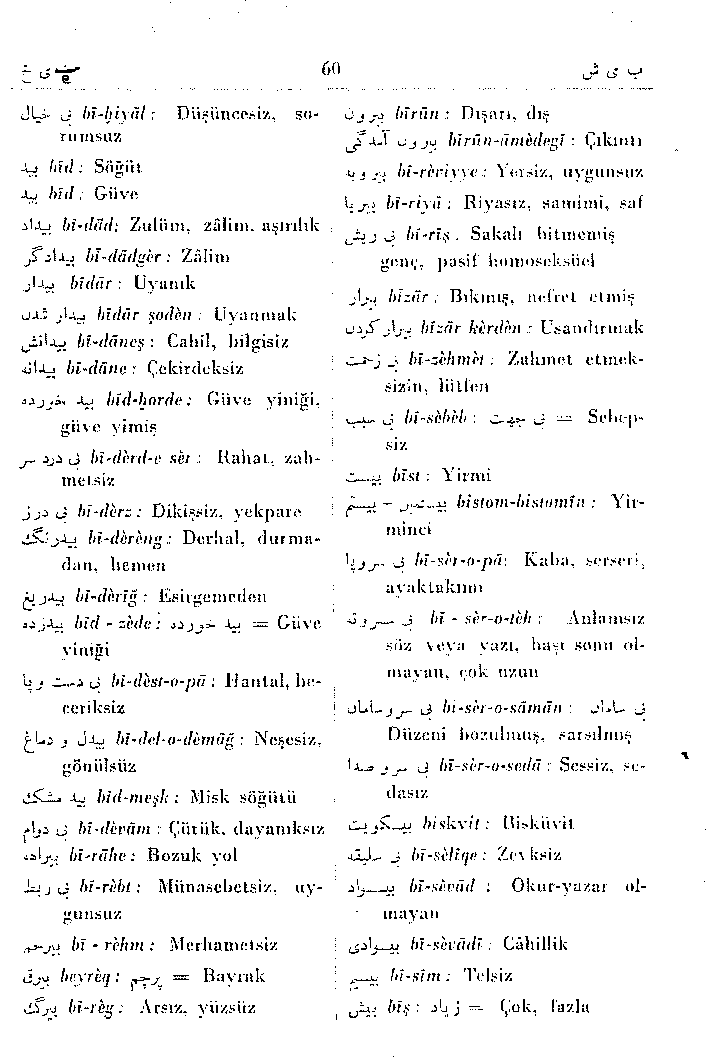 ب ی خ 60 ب ی ش
بی خیال bī-ḫiyāl : Düşüncesiz, so-
rumsuz
بید bīd : Söğüt
بید bīd : Güve
بیداد bī-dād: Zulüm, zâlim, aşırılık
بیدادگر bī-dādgèr : Zâlim
بیدار bīdār : Uyanık
بیدار شدن bīdār şodèn : Uyanmak
بیدانش bī-dāneş : Cahil, bilgisiz
بیدانه bī-dāne : Çekirdeksiz
بید خورده bīd-ḫorde : Güve yiniği,
güve yimiş
بی درد سر bī-dèrd-e sèr : Rahat, zah-
metsiz
بی درز bī-dèrz : Dikişsiz, yekpare
بیدرنگ bī-dèrèng : Derhal, durma-
dan, hemen
بیدریغ bī-dèrīğ : Esirgemeden
بیدزده bīd - zède : بید خورده = Güve
yiniği
بی دست و پا bī-dèst-o-pā : Hantal, be-
ceriksiz
بیدل و دماغ bī-del-o-dèmāğ : Neşesiz,
gönülsüz
بید مشک bīd-meşk : Misk söğütü
بی دوام bī-dèvām : Çütük, dayanıksız
بیراهه bī-rāhe : Bozuk yol
بی ربط bī-rèbt : Münasebetsiz, uy-
gunsuz
بیرحم bī - rèhm : Merhametsiz
بیرق beyrèq : پرچم = Bayrak
بیرگ bī-règ : Arsız, yüzsüz
بیرون bīrūn : Dışarı, dış
بیرون آمدگی bīrūn-āmèdegī : Çıkıntı
بیرویه bī-rèviyye : Yersiz, uygunsuz
بیریا bī-riyā : Riyasız, samimi, saf
بی ریش bī-rīş . Sakalı bitmemiş
genç, pasif homoseksüel
بیزار bīzār : Bıkmış, nefret etmiş
بیزار کردن bīzār kèrdèn : Usandırmak
بی زحمت bī-zèhmèt : Zahmet etmek-
sizin, lütfen
بی سبب bī-sèbèb : بی جهت = Sebep-
siz
بیست bīst : Yirmi
بیستم - بیستمین bīstom-bīstomīn : Yir-
minci
بی سر و پا bī-sèr-o-pā: Kaba, serseri,
ayaktakımı
بی سر و ته bī - sèr-o-tèh : Anlamsız
söz veya yazı, başı sonu ol-
mayan, çok uzun
بی سر و سامان bī-sèr-o-sāmān : بی سامان
Düzeni bozulmuş, sarsılmış
بی سر و صدا bī-sèr-o-sedā : Sessiz, se-
dasız
بیسکویت biskvit : Bisküvit
بی سلیقه bī-sèlīqe : Zevksiz
بیسواد bī-sèvād : Okur-yazar ol-
mayan
بیسوادی bī-sèvādī : Câhillik
بیسیم bī-sīm : Telsiz
بیش bīş : زیاد = Çok, fazla